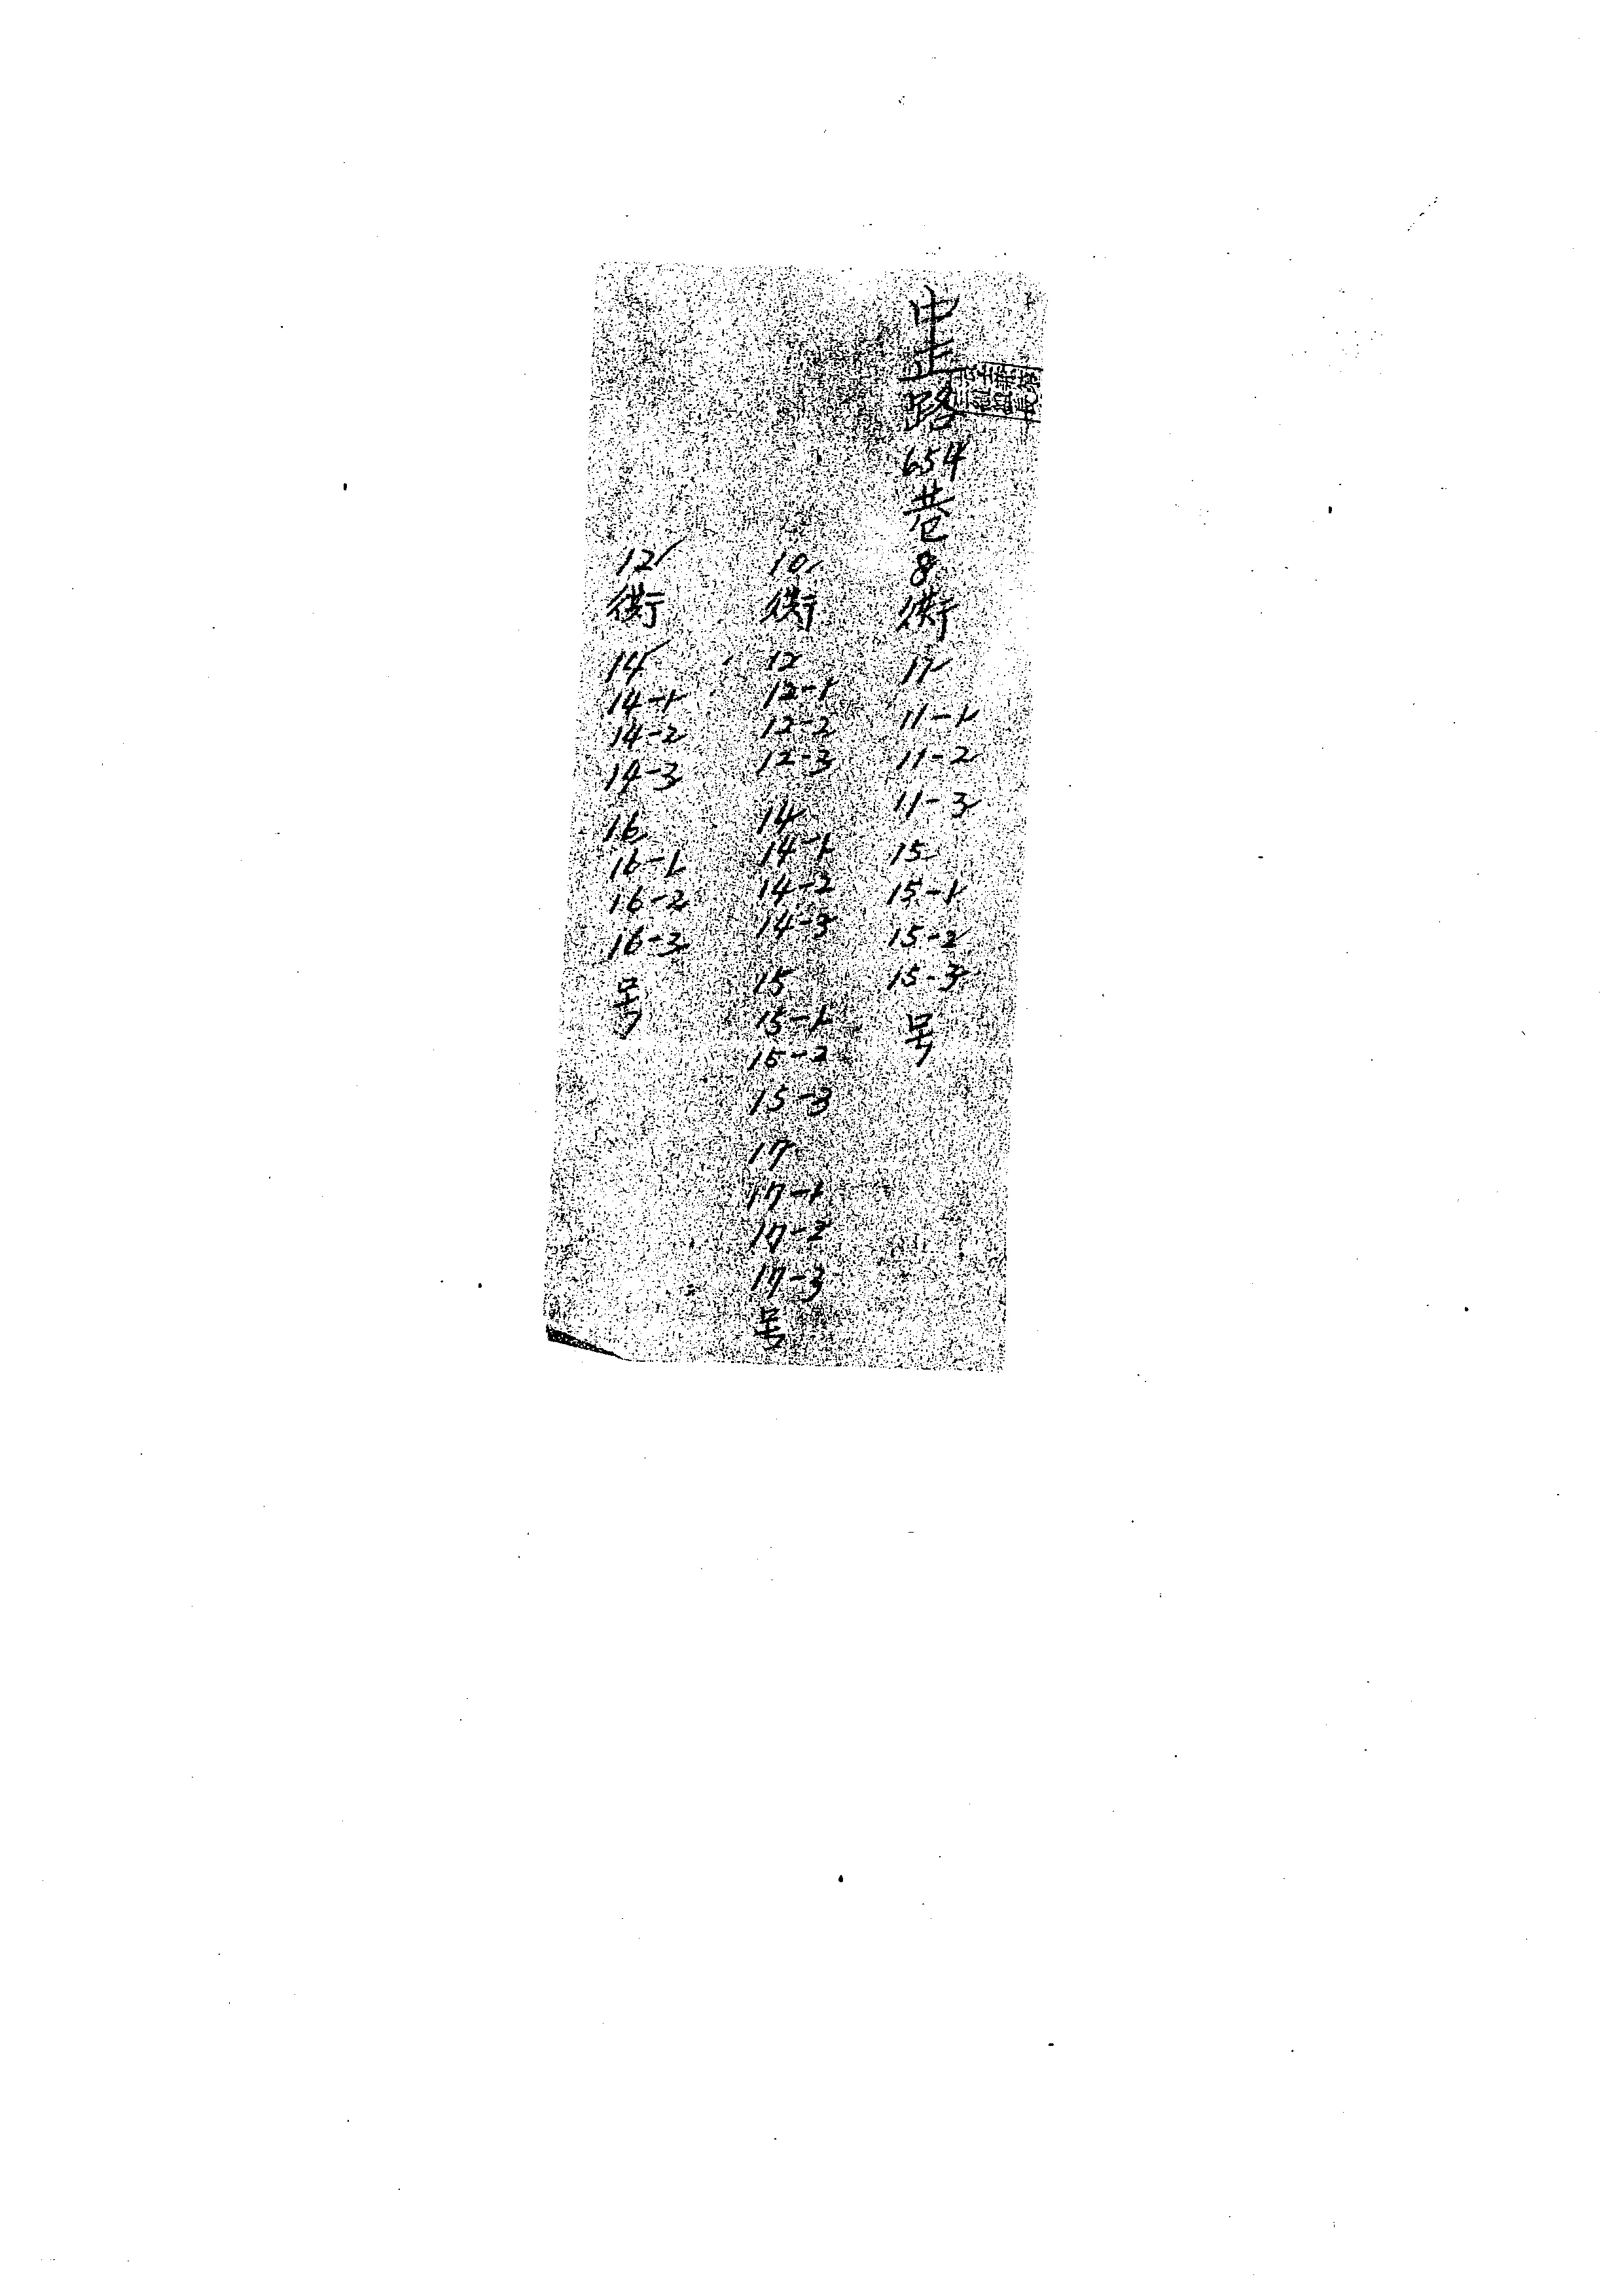 中正路654巷8衖11 11-1 11-2 11-3 15 15-1 15-2 15-3号
10衖12 12-1 12-2 12-3 14 14-1 14-2 14-3 15 15-1 15-2 15-3 17 17-1 17-2 17-3号
12衖14 14-1 14-2 14-3 16 16-1 16-2 16-3号